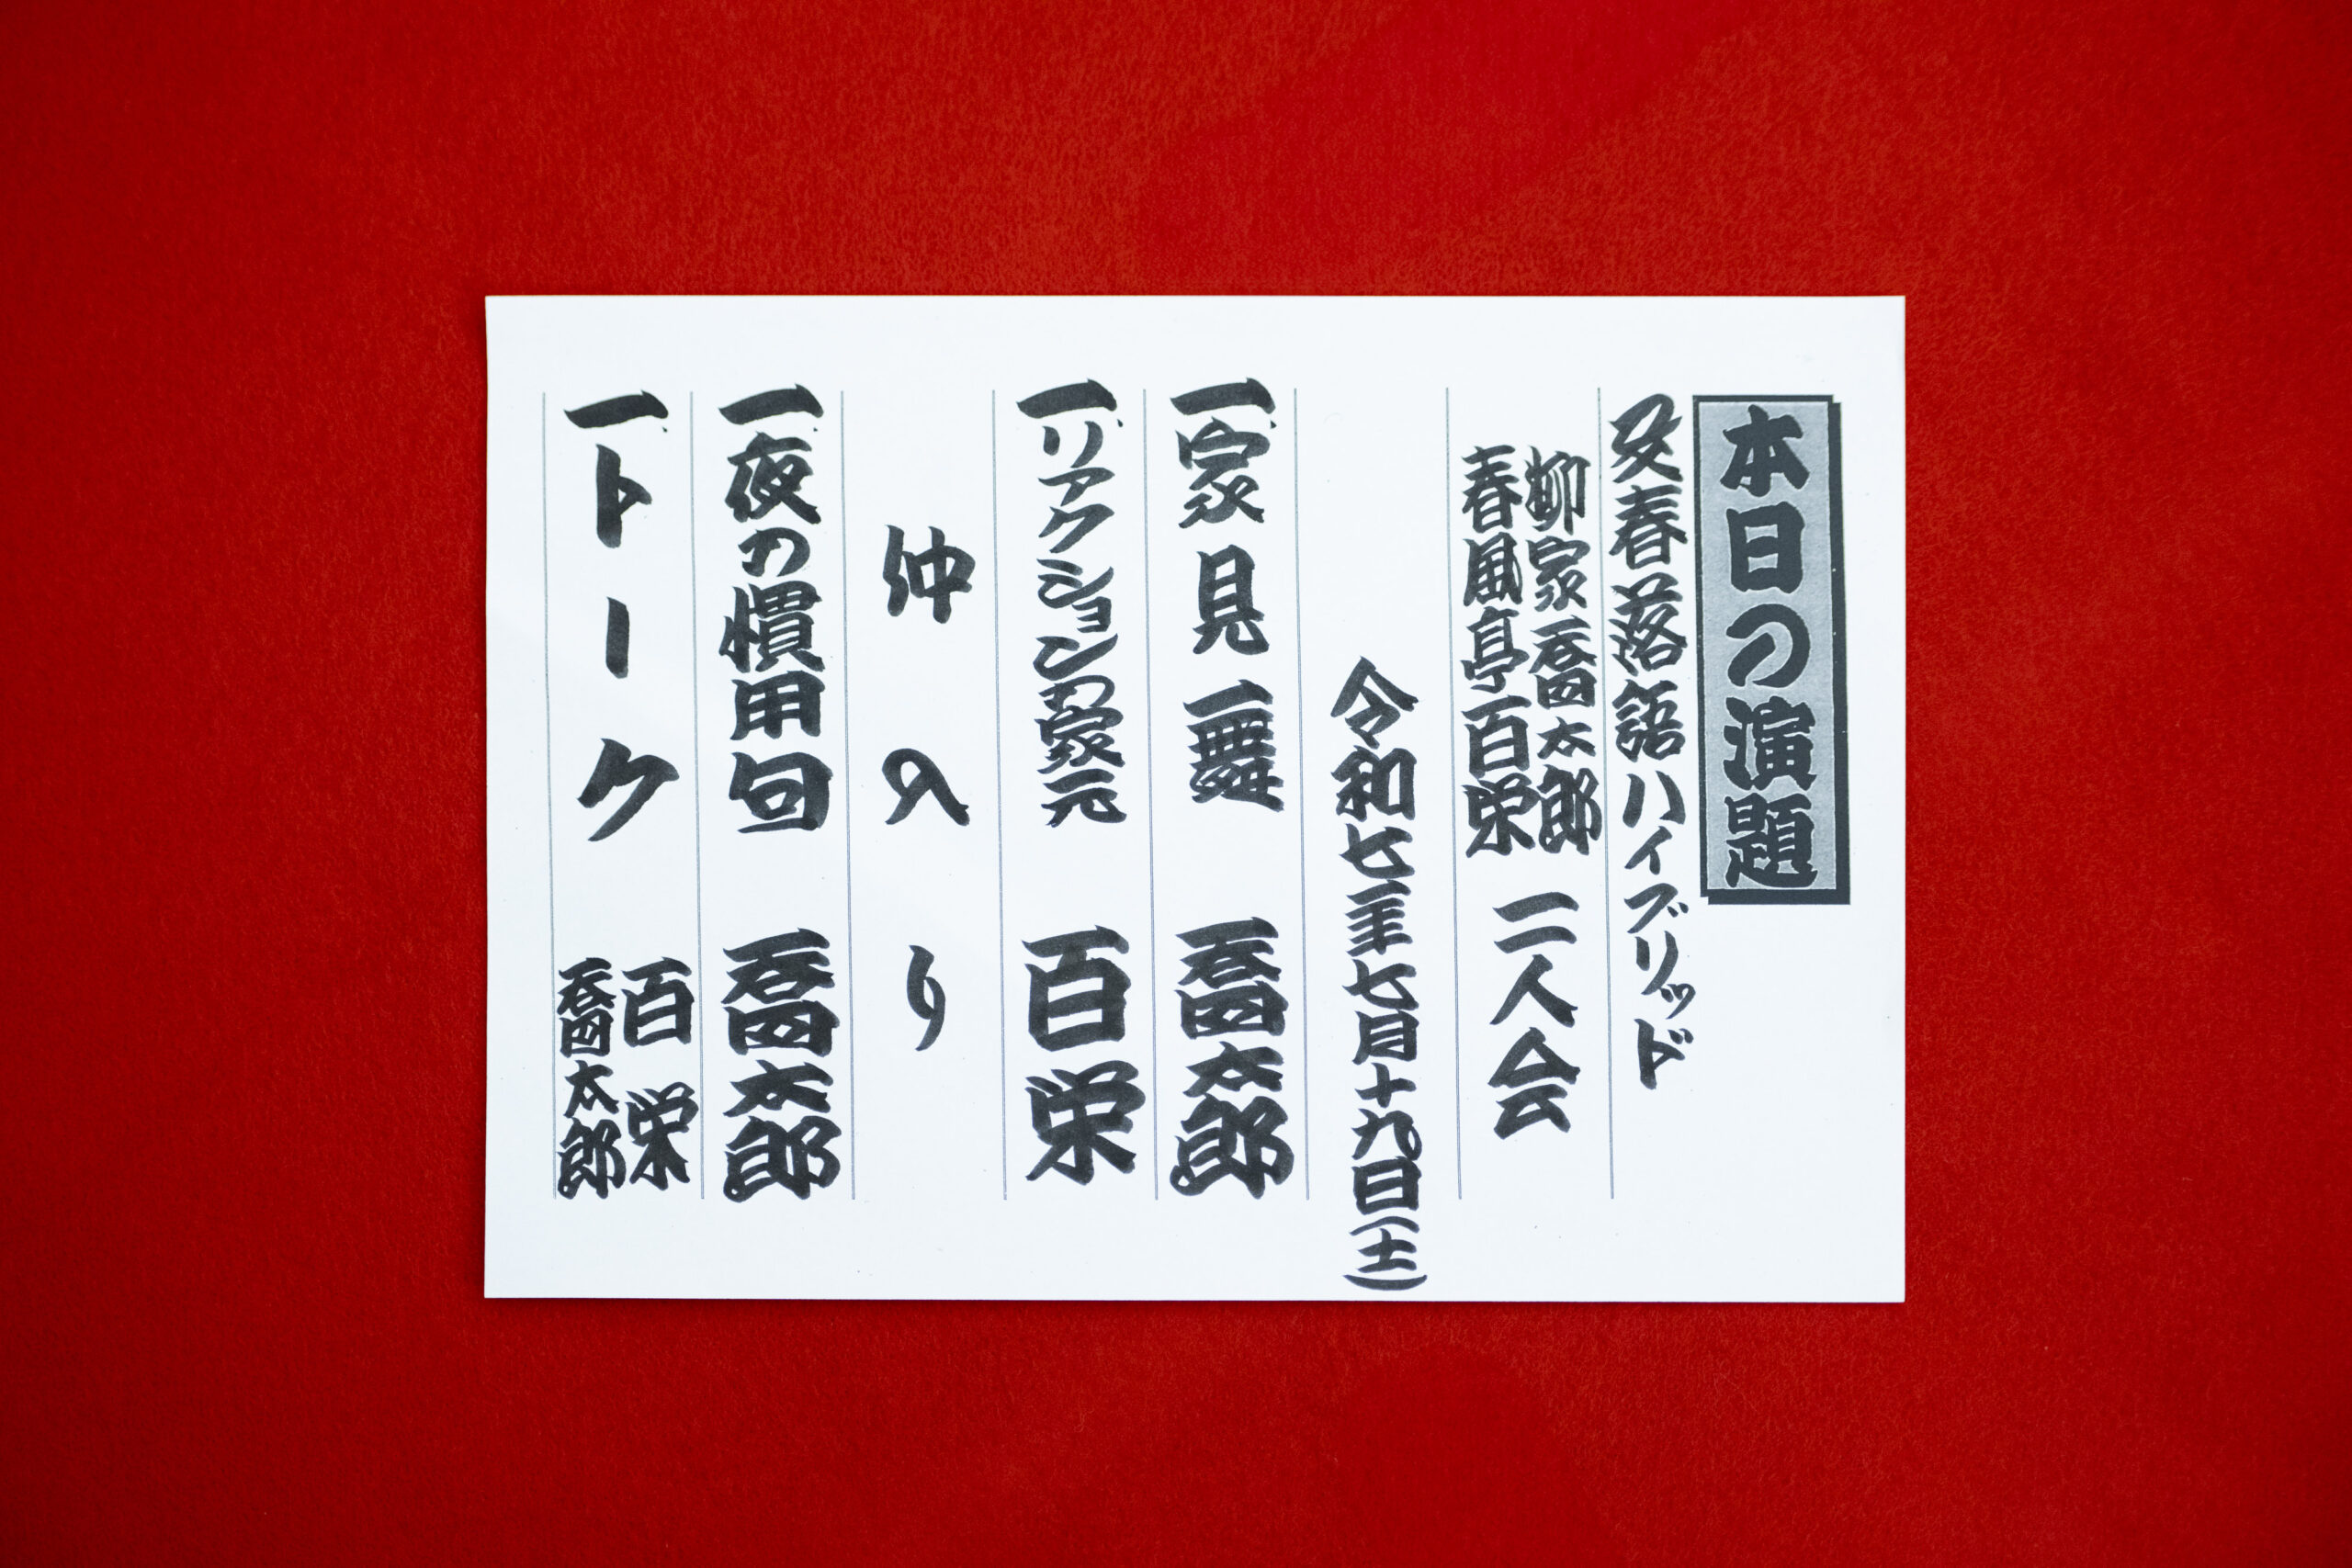 本日の演題
文春落語ハイブリッド
柳家喬太郎
春風亭百栄
二人会
令和七年七月十九日(土)
一、家見舞 喬太郎
一、リアクションの家元 百栄
仲入り
一、夜の慣用句 喬太郎
一、トーク 百栄
喬太郎